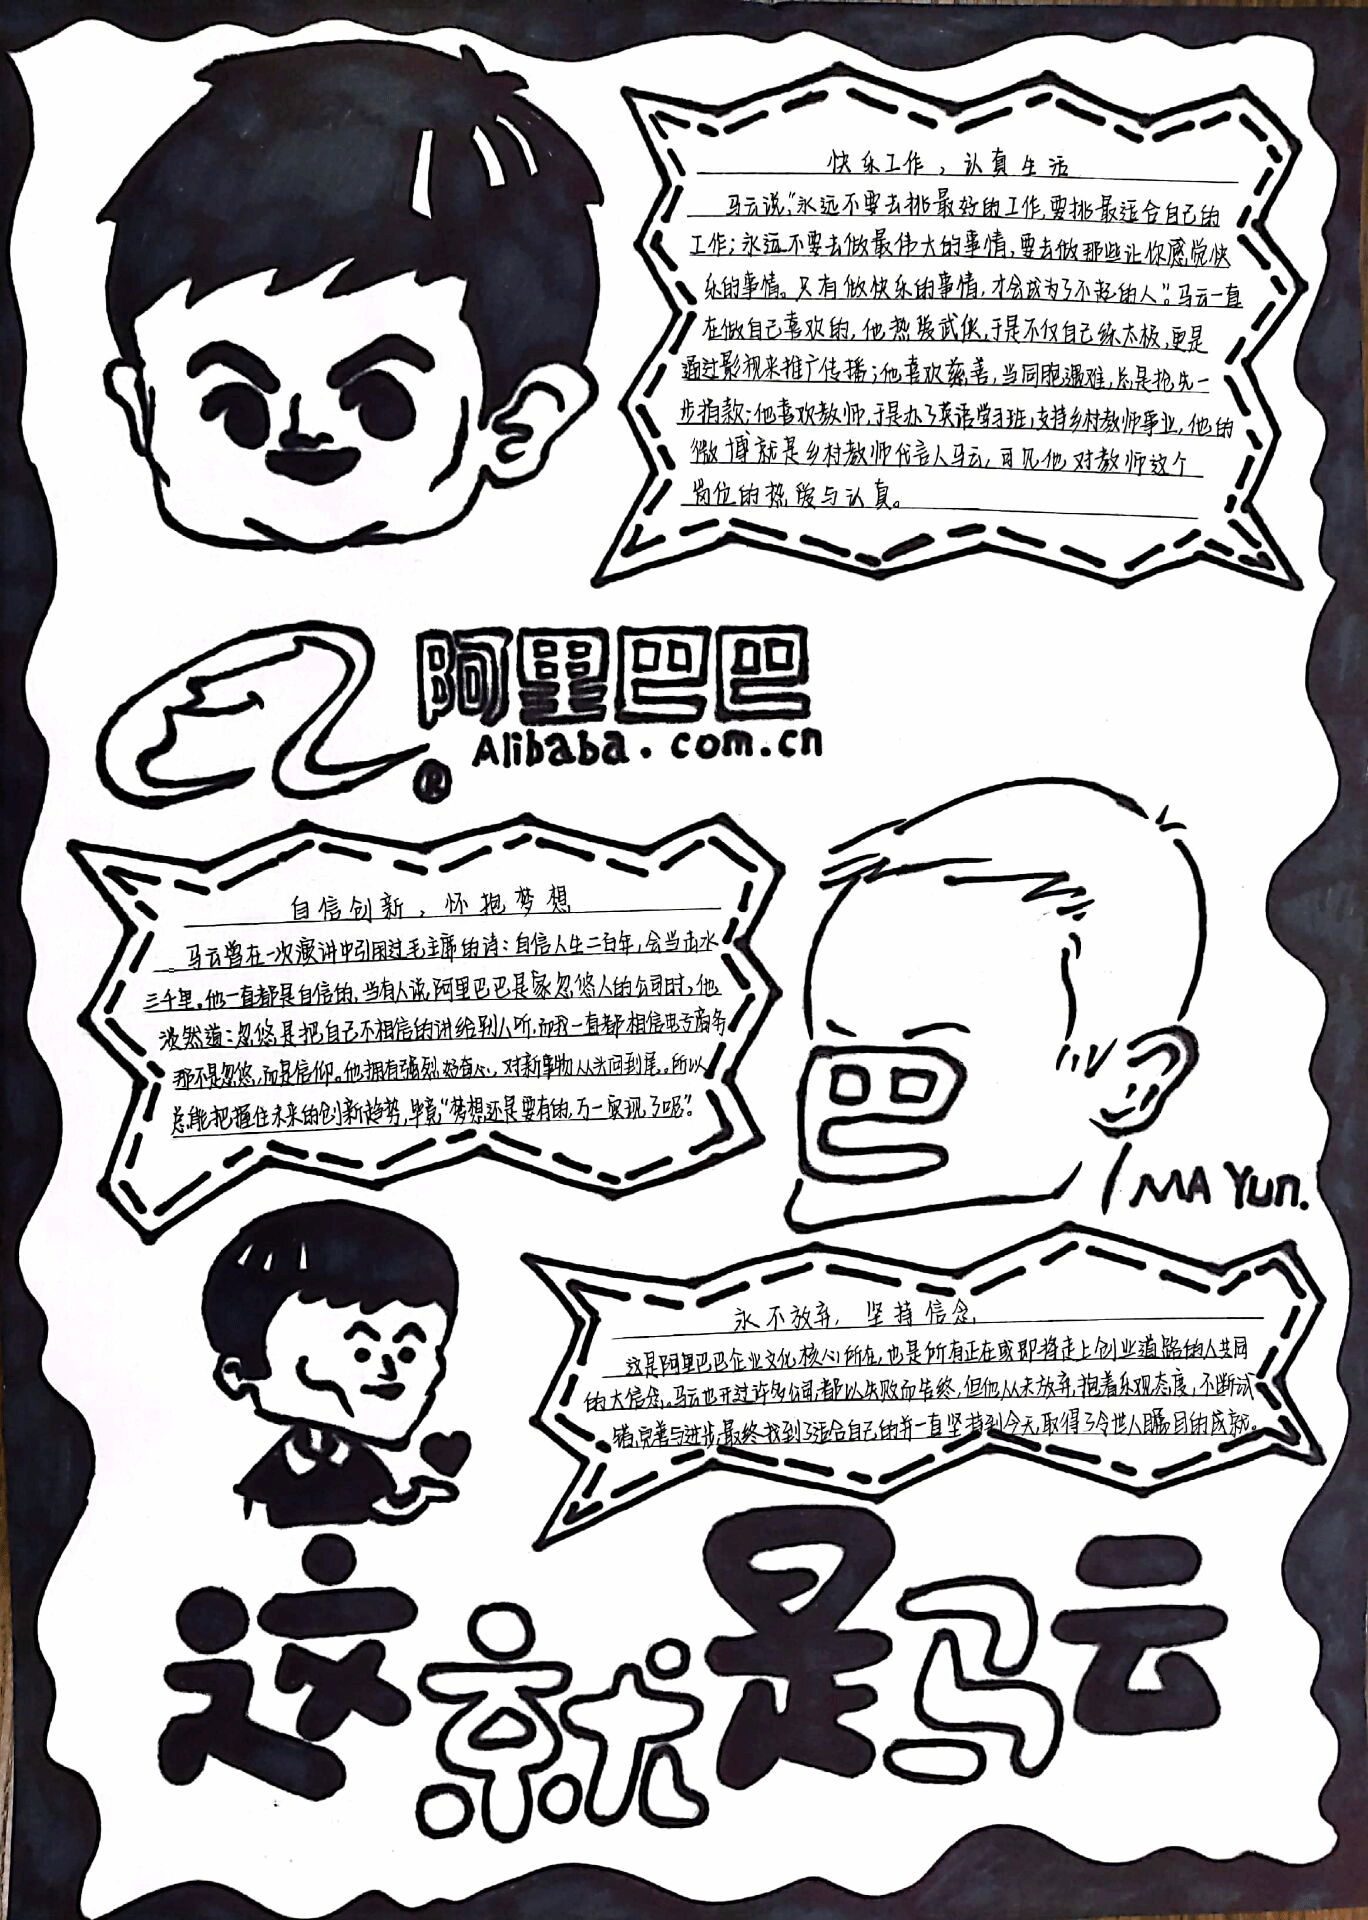 快乐工作，认真生活
马云说，“永远不要去挑最好的工作，要挑最适合自己的
工作；永远不要去做最伟大的事情，要去做那些让你感觉快
乐的事情。只有做快乐的事情，才会成为了不起的人”。马云一直
在做自己喜欢的，他热爱武侠，于是不仅自己练太极，更是
通过影视来推广传播；他喜欢慈善，当同胞遇难，总是抢先一
步捐款；他喜欢教师，于是办了英语学习班，支持乡村教师事业，他的
微博就是乡村教师代言人马云，可见他对教师这个
岗位的热爱与认真。
阿里巴巴
Alibaba.com.cn
®
自信创新，怀抱梦想
马云曾在一次演讲中引用过毛主席的诗：自信人生二百年，会当击水
三千里。他一直都是自信的，当有人说阿里巴巴是家忽悠人的公司时，他
淡然道：忽悠是把自己不相信的讲给别人听，而我一直都相信电子商务
那不是忽悠，而是信仰。他拥有强烈好奇心，对新事物从头问到尾。所以
总能把握住未来的创新趋势，毕竟“梦想还是要有的，万一实现了呢”。
巴
MA Yun.
永不放弃，坚持信念
这是阿里巴巴企业文化核心所在，也是所有正在或即将走上创业道路的人共同
的大信念。马云也开过许多公司，都以失败而告终，但他从未放弃，抱着乐观态度，不断试
错，完善与进步，最终找到了适合自己的并一直坚持到今天，取得了令世人瞩目的成就。
这就是马云